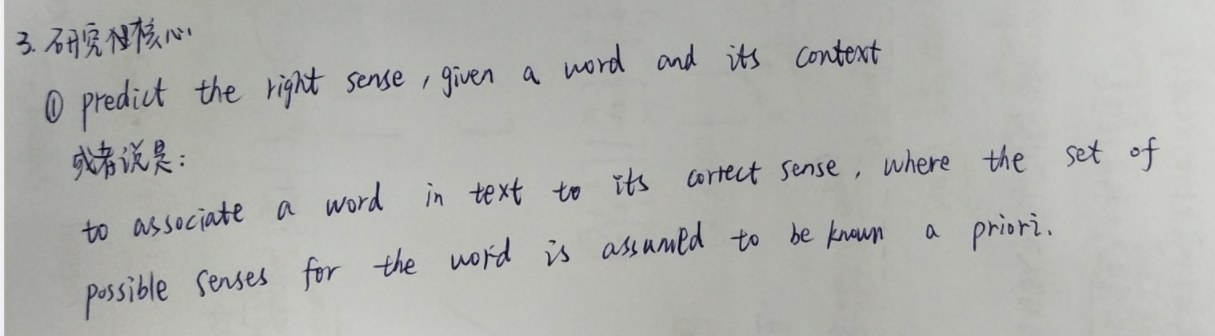 3. 研究性核心
① predict the right sense, given a word and its context
或者说是:
to associate a word in text to its correct sense, where the set of
possible senses for the word is assumed to be known a priori.